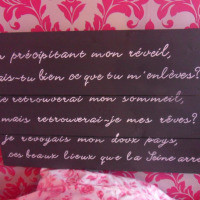 précipitant mon réveil,
ais-tu bien ce que tu m'enlèves?
e retrouverai mon sommeil,
mais retrouverai-je mes rêves?
je revoyais mon doux pays,
ces beaux lieux que la Seine arro